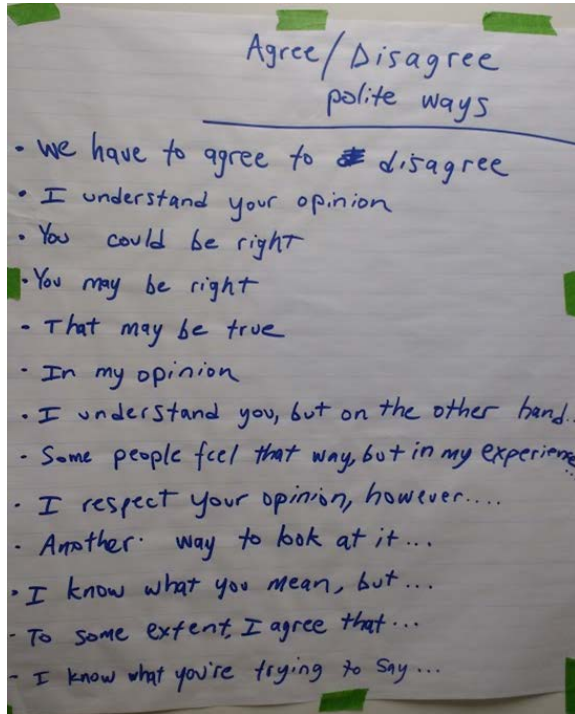 Agree/Disagree
polite ways
• We have to agree to disagree
• I understand your opinion
• You could be right
• You may be right
- That may be true
- In my opinion
• I understand you, but on the other hand..
- Some people feel that way, but in my experience...
- I respect your opinion, however....
- Another way to look at it...
• I know what you mean, but...
- To some extent, I agree that...
- I know what you're trying to say...